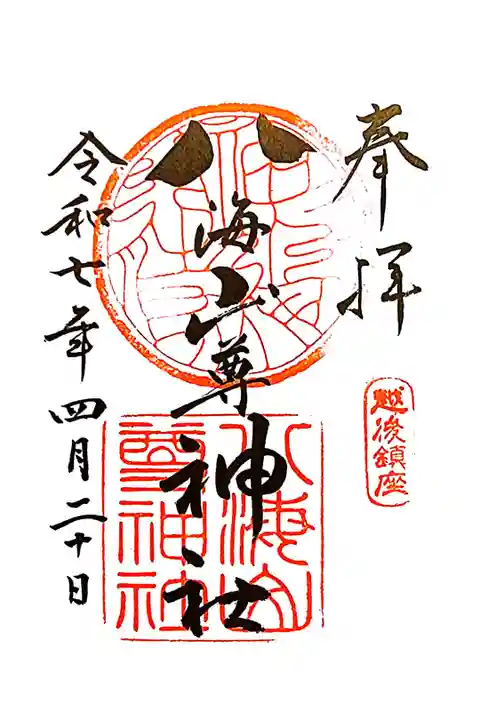 奉拝
越後鎮座
八海山尊神社
八海山
尊神社
令和七年四月二十日